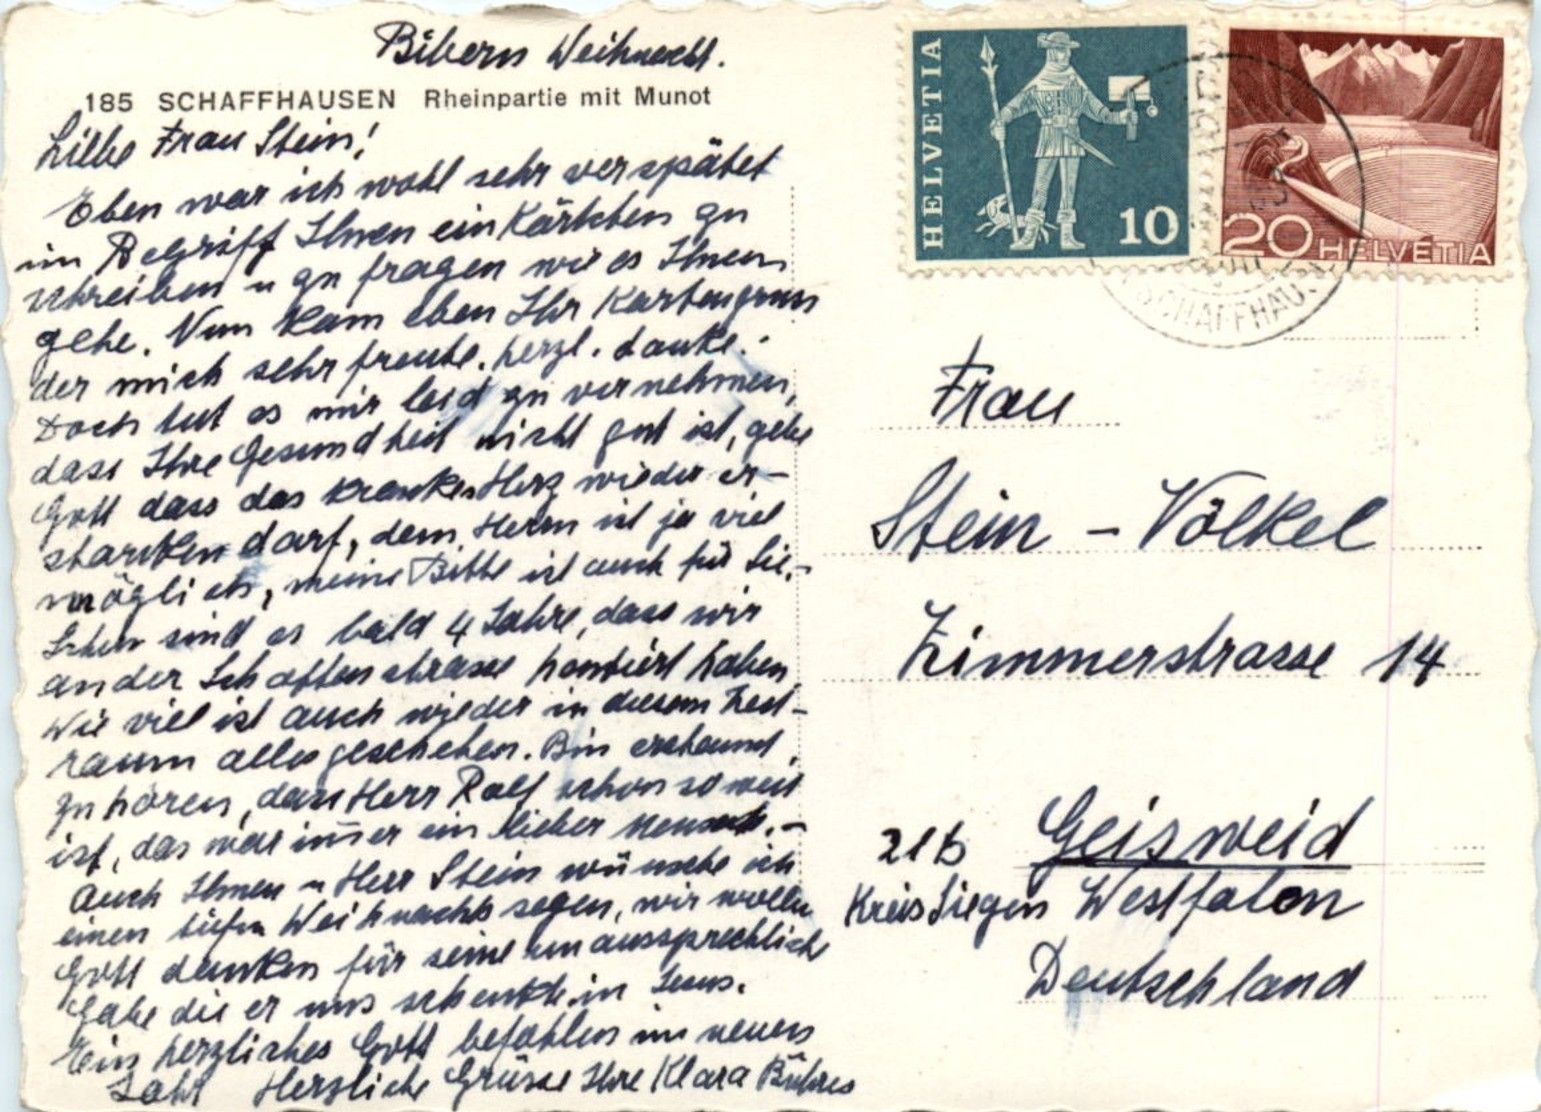 Bibern Weihnacht.
185 SCHAFFHAUSEN Rheinpartie mit Munot
Liebe Frau Stein!
Eben war ich wohl sehr verspätet
im Begriff Ihnen ein Kärtchen zu
schreiben u zu fragen wie es Ihnen
gehe. Nun kam eben Ihr Kartengruss
der mich sehr freute. herzl. danke.-
Doch tut es mir leid zu vernehmen,
dass Ihre Gesundheit nicht gut ist, gebe
Gott dass das kranke Herz wieder er-
starken darf, dem Herrn ist ja viel
möglich, meine Bitte ist auch für Sie.-
Schon sind es bald 4 Jahre, dass wir
an der Schottenstrasse hantiert haben
Wie viel ist auch wieder in diesem Zeit-
raum alles geschehen. Bin erstaunt
zu hören, dass Herr Rolf schon so weit
ist, das war im̄er ein lieber Mensch.-
Auch Ihnen u Herr Stein wünsche ich
einen tiefen Weihnachtssegen, wir wollen
Gott danken für seine unaussprechlich
Gabe die er uns schenkte in Jesus.
Ein herzliches Gott befohlen im neuen
Jahr Herzliche Grüsse Ihre Klara Bührer
HELVETIA 10
20 HELVETIA
SCHAFFHAUS
Frau
Stein - Völkel
Zimmerstrasse 14
21b Geisweid
Kreis Siegen Westfalen
Deutschland